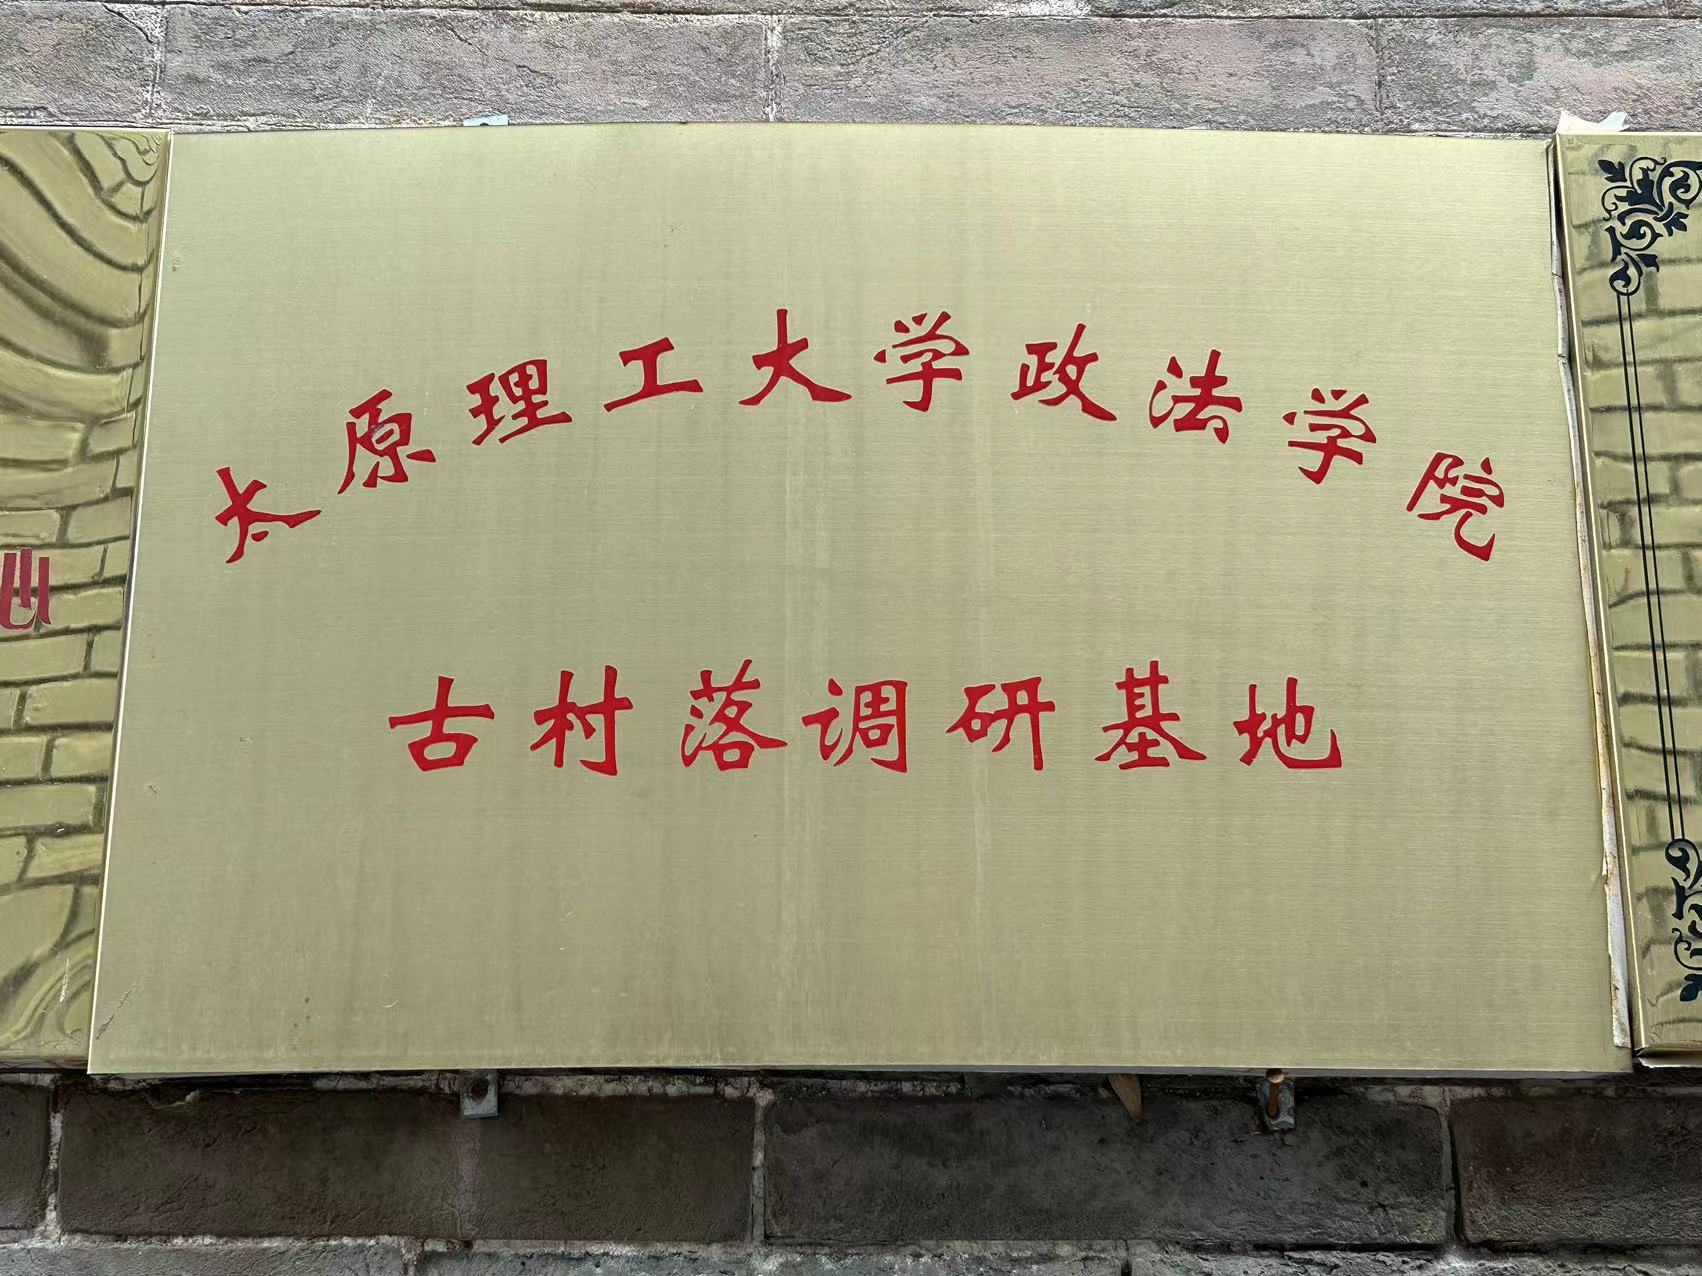 太原理工大学政法学院
古村落调研基地